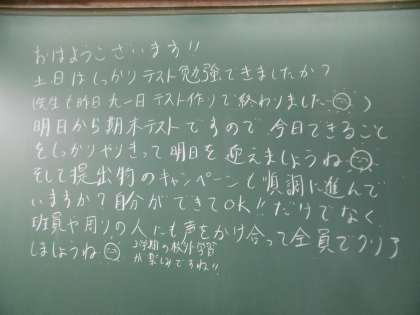 おはようございます!!
土日はしっかりテスト勉強できましたか?
(先生も昨日丸一日テスト作りで終わりました)
明日から期末テストですので今日できること
をしっかりやりきって明日を迎えましょうね
そして提出物のキャンペーンも順調に進んで
いますか?自分ができてOK!!だけでなく
班員や周りの人にも声をかけ合って全員でクリア
しましょうね
2学期の校外学習
が楽しみですね!!